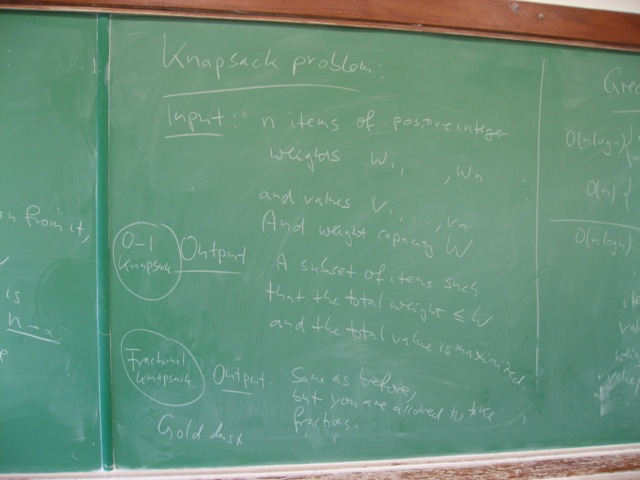 Knapsack problem:
Input: n items of positive integer
weights w1, ..., wn
and values v1, ..., vn
And weight capacity W
0-1
Knapsack
Output
A subset of items such
that the total weight ≤ W
and the total value is maximized
Fractional
Knapsack
Output.
Same as before,
but you are allowed to take
fractions.
Gold dust
from it,
is
n-
Gree
O(nlogn) {
O(n) {
O(nlogn)
ite
valu
weigh
value